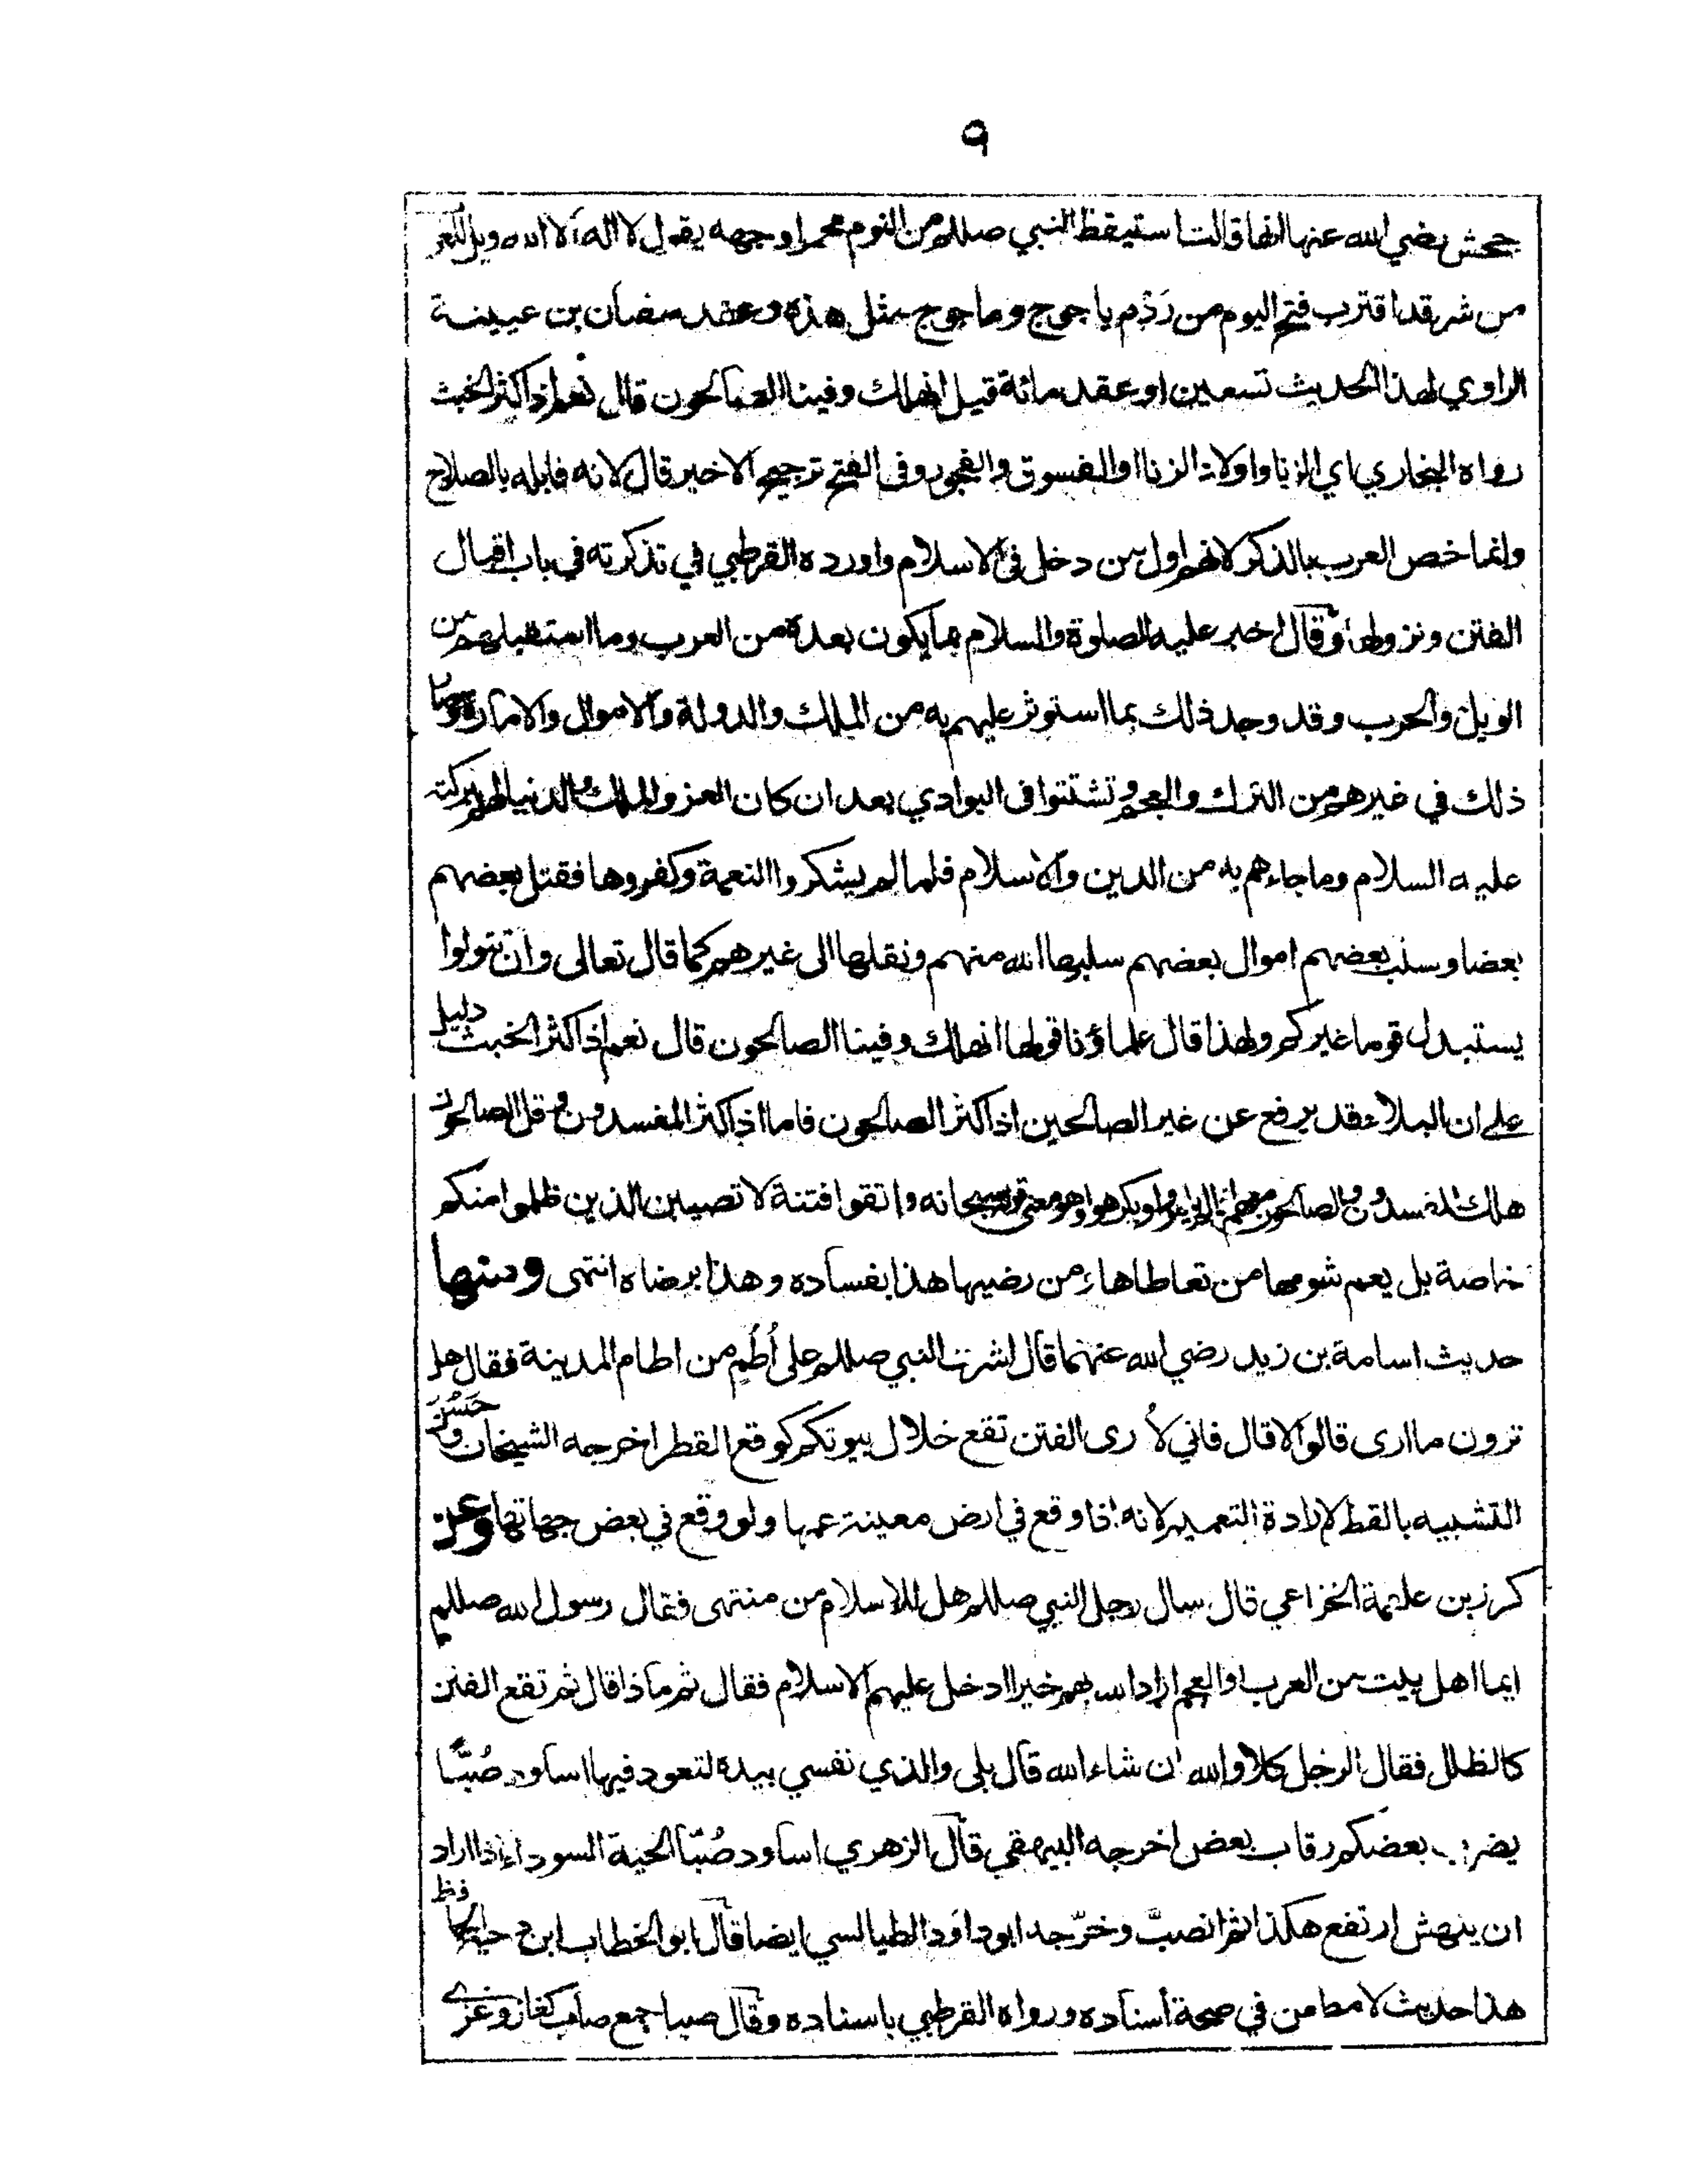 ٩
جحش رضي الله عنها انها قالت استيقظ النبي صللم من النوم محمرا وجهه يقول لا اله الا الله ويل للعر
من شر قد اقترب فتح اليوم من رَدْم ياجوج وماجوج مثل هذه وعقد سفيان بن عيينة
الراوي لهذا الحديث تسعين او عقد مائة قيل انهلك وفينا الصالحون قال نعم اذا كثر الخبث
رواه البخاري اي الزنا واولاد الزنا او الفسوق والفجور وفى الفتح ترجيح الاخير قال لانه قابله بالصلاح
وانما خص العرب بالذكر لانهم اول من دخل فى الاسلام واورده القرطبي في تذكرته في باب اقبال
الفتن ونزولها وقال اخبر عليه الصلوة والسلام بما يكون بعده من العرب وما استقبلهم من
الويل والحرب وقد وجد ذلك بما استوثر عليهم به من الملك والدولة والاموال والامارة وصا
ذلك في غيرهم من الترك والعجم وتشتتوا فى البوادي بعد ان كان العز والملك والدنيا لهم ببركته
عليه السلام وما جاءهم به من الدين والاسلام فلما لم يشكروا النعمة وكفروها فقتل بعضهم
بعضا وسلب بعضهم اموال بعضهم سلبها الله منهم ونقلها الى غيرهم كما قال تعالى وان تتولوا
يستبدل قوما غيركم ولهذا قال علماؤنا قولها انهلك وفينا الصالحون قال نعم اذا كثر الخبث دليل
على ان البلاء قد يرفع عن غير الصالحين اذا كثر الصالحون فاما اذا كثر المفسدون وقل الصالحون
هلك المفسدون والصالحون معهم اذا لم يامروا ويكرهوا وهو معنى قوله سبحانه واتقوا فتنة لا تصيبن الذين ظلموا منكم
خاصة بل يعم شومها من تعاطاها ومن رضيها هذا بفساده وهذا برضاه انتهى ومنها
حديث اسامة بن زيد رضي الله عنهما قال اشرف النبي صللم على أُطُم من اطام المدينة فقال هل
ترون ما ارى قالوا لا قال فاني لأرى الفتن تقع خلال بيوتكم كوقع القطر اخرجه الشيخان وحَسُنَ
التشبيه بالقطر لارادة التعميم لانه اذا وقع في ارض معينة عمها ولو وقع في بعض جهاتها وعن
كرز بن علقمة الخزاعي قال سال رجل النبي صللم هل للاسلام من منتهى فقال رسول الله صللم
ايما اهل بيت من العرب او العجم اراد الله بهم خيرا ادخل عليهم الاسلام فقال ثم ماذا قال ثم تقع الفتن
كالظلل فقال الرجل كلا والله ان شاء الله قال بلى والذي نفسي بيده لتعود فيها اساود صُبًّا
يضرب بعضكم رقاب بعض اخرجه البيهقي قال الزهري اساود صُبّا الحية السوداء اذا اراد
ان ينهش ارتفع هكذا ثم انصبَّ وخرّجه ابو داود الطيالسي ايضا قال ابو الخطاب ابن دحية الحافظ
هذا حديث لا مطعن في صحة اسناده ورواه القرطبي باسناده وقال صبا جمع صاب كغاز وغزى